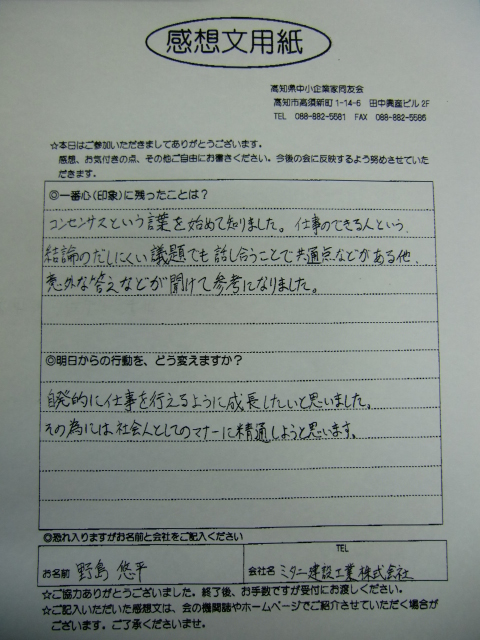 感想文用紙
高知県中小企業家同友会
高知市高須新町1-14-6 田中農産ビル2F
TEL 088-882-5581 FAX 088-882-5586
☆本日はご参加いただきましてありがとうございます。
感想、お気付きの点、その他ご自由にお書きください。今後の会に反映するよう努めさせていた
だきます。
◎一番心(印象)に残ったことは？
コンセンサスという言葉を始めて知りました。仕事のできる人という、
結論のだしにくい議題でも話し合うことで共通点などがある他、
意外な答えなどが聞けて参考になりました。
◎明日からの行動を、どう変えますか？
自発的に仕事を行えるように成長したいと思いました。
その為には社会人としてのマナーに精通しようと思います。
◎恐れ入りますがお名前と会社をご記入ください
TEL
お名前 野島 悠平 会社名 ミタニ建設工業株式会社
☆ご協力ありがとうございました。終了後、お手数ですが受付にお渡しください。
☆ご記入いただいた感想文は、会の機関誌やホームページでご紹介させていただく場合が
ございます。ご了承くださいませ。